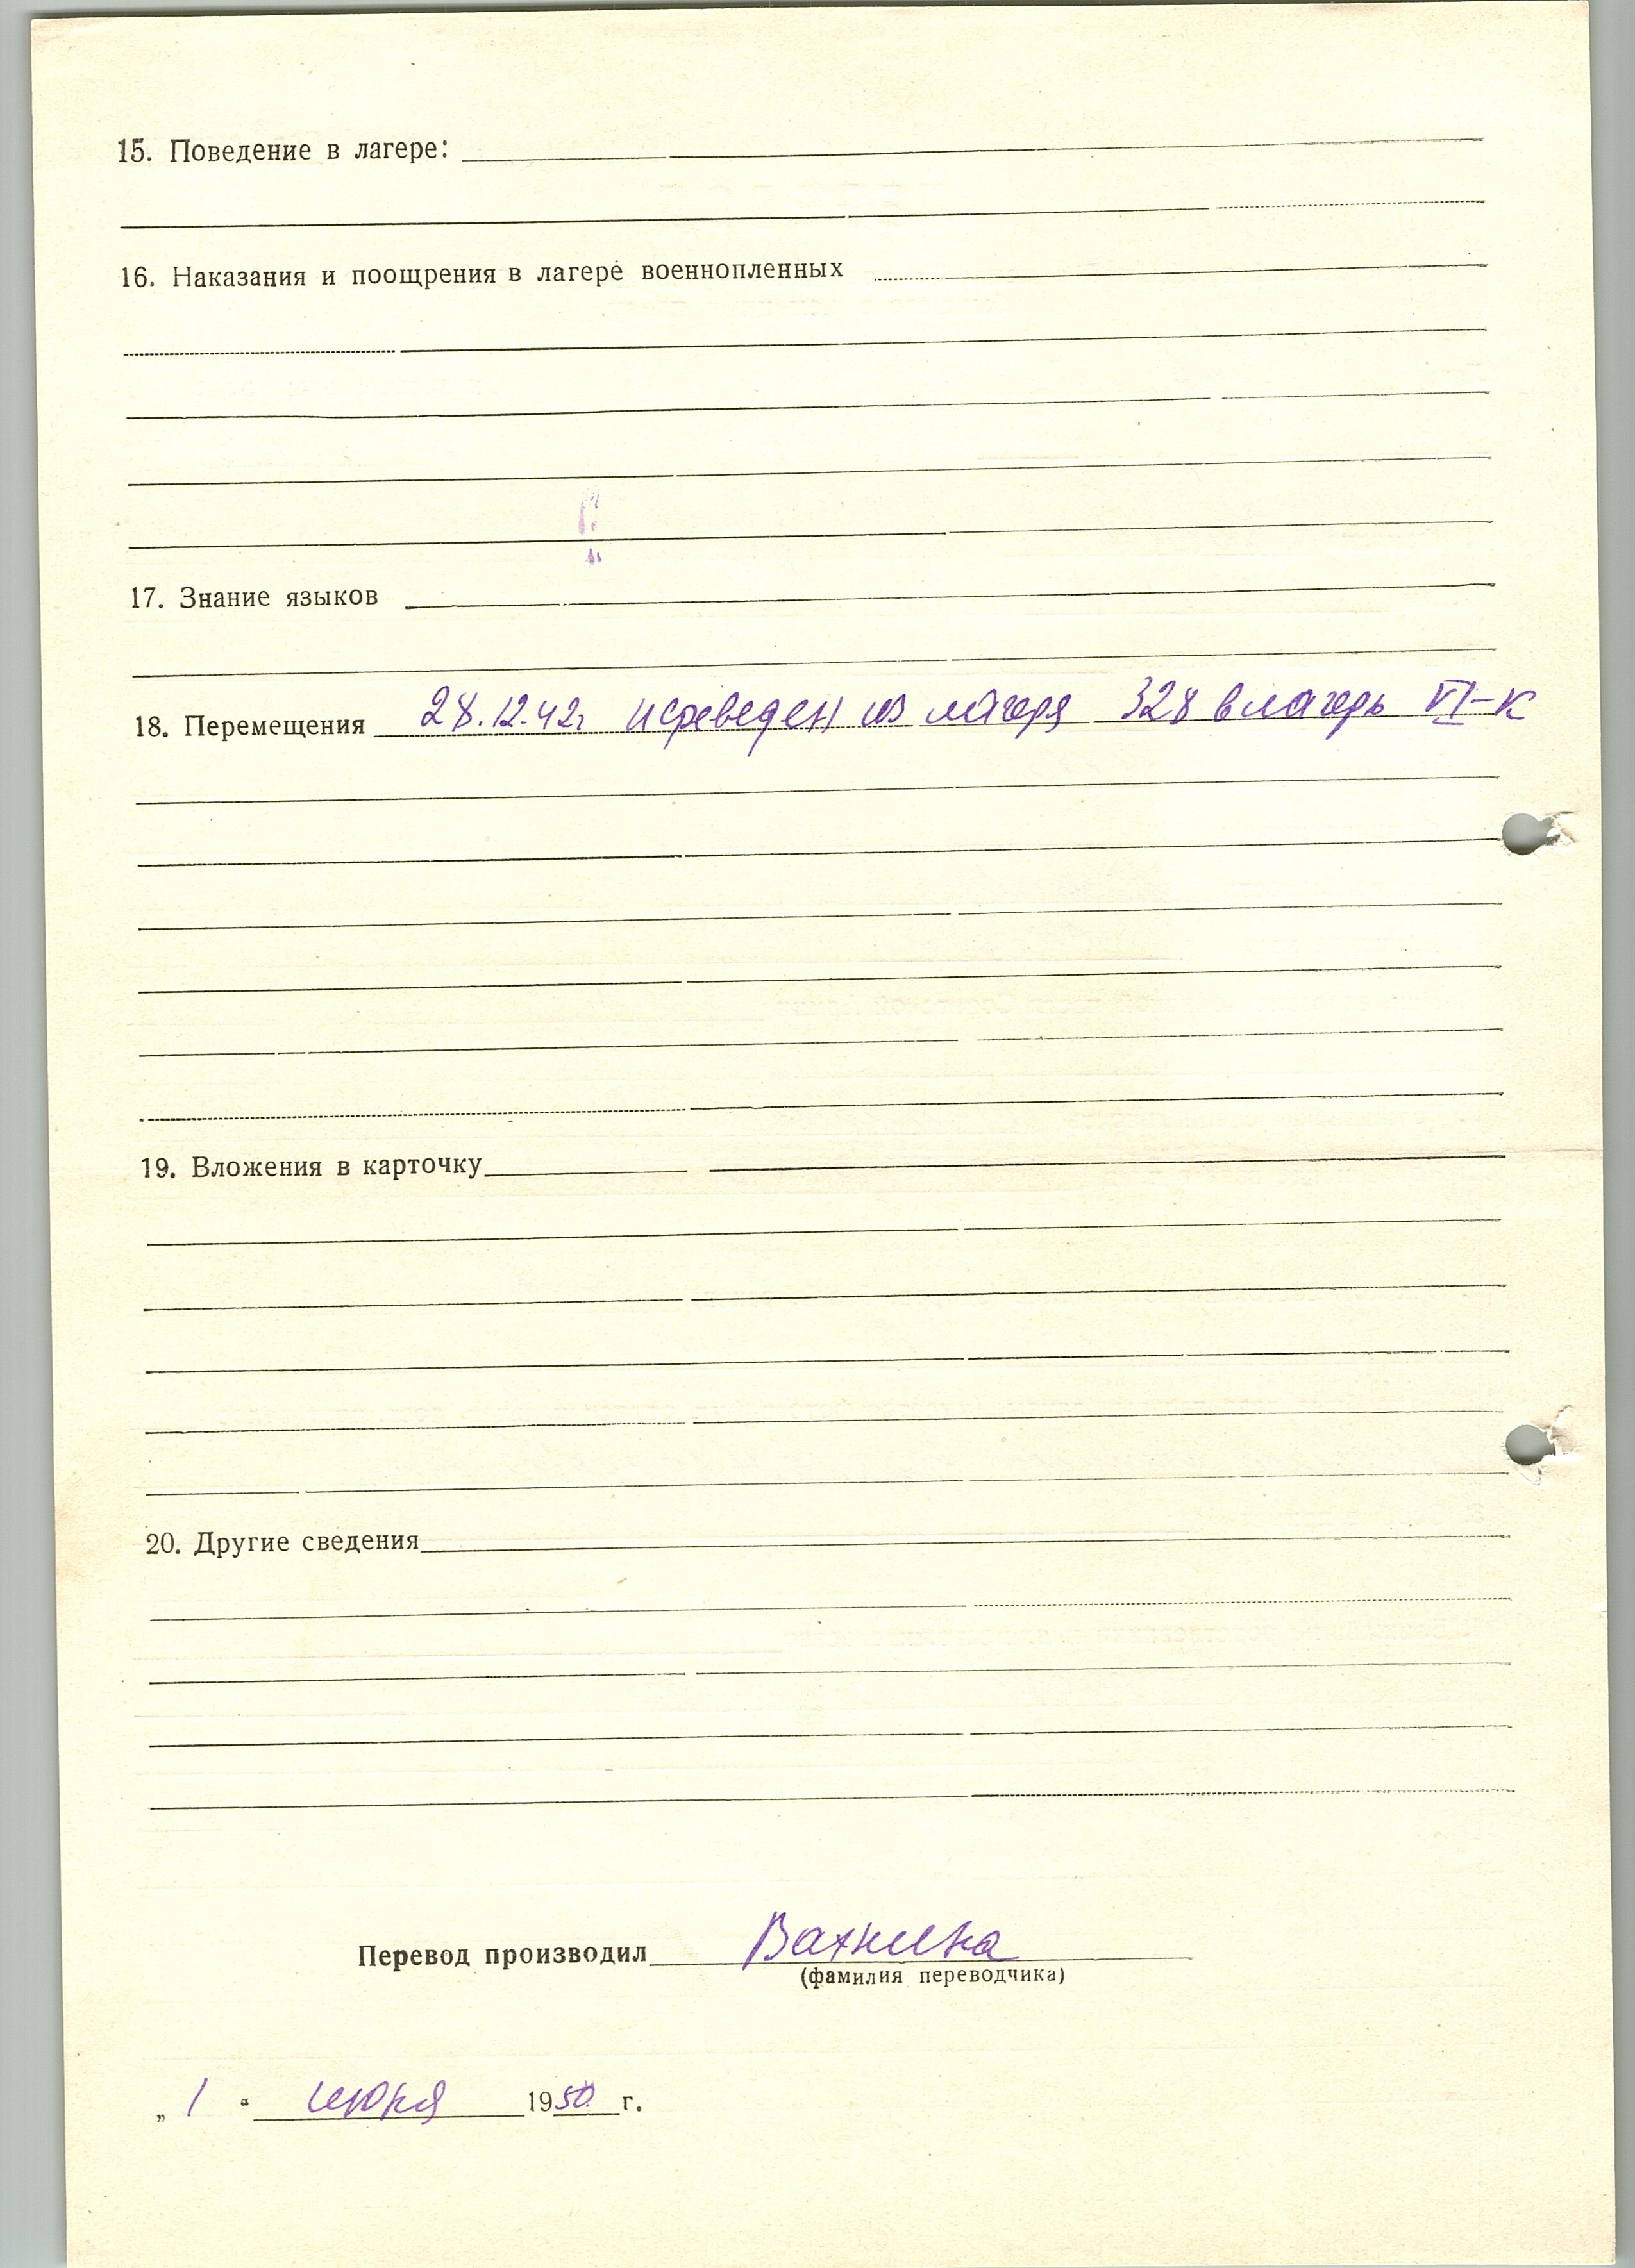 15. Поведение в лагере:
16. Наказания и поощрения в лагере военнопленных
17. Знание языков
18. Перемещения 28.12.42г переведен из лагеря 328 в лагерь VI-К
19. Вложения в карточку
20. Другие сведения
Перевод производил Вахнина
(фамилия переводчика)
„ 1 “ июня 1950 г.